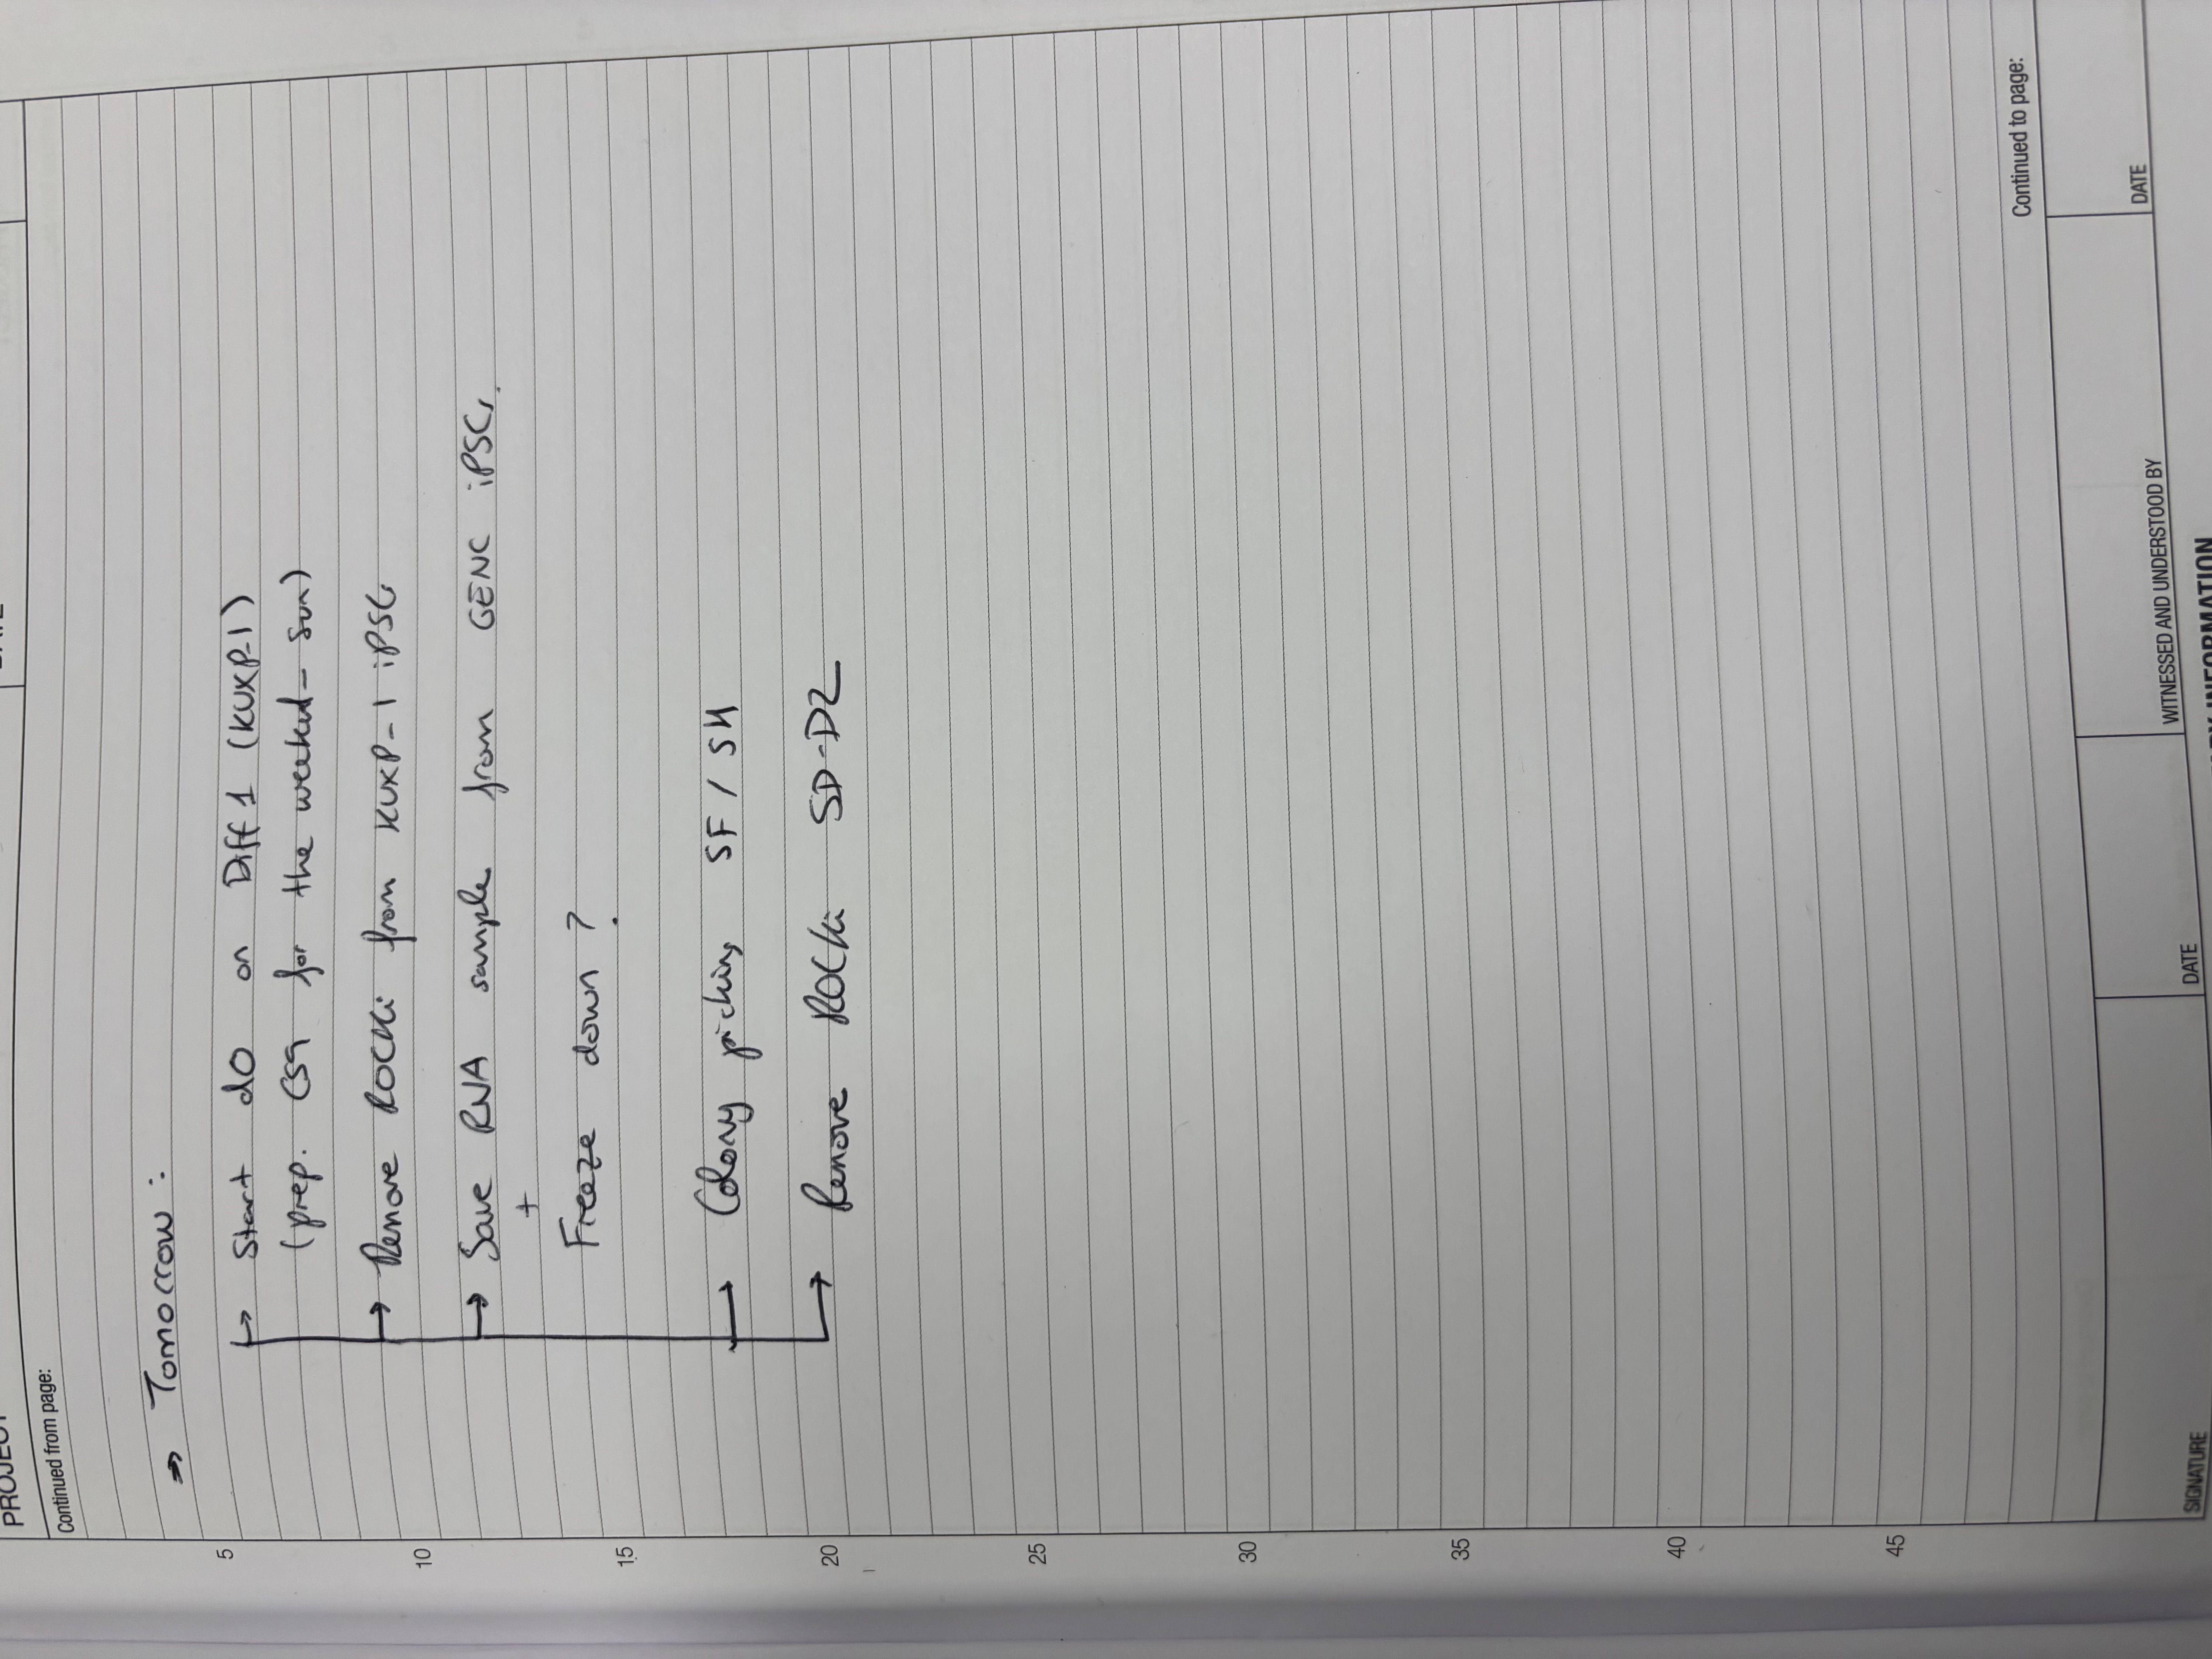 PROJECT
DATE
Continued from page:
⇒ Tomorrow :
5
→ Start d0 on Diff 1 (KUXP-1)
(prep. CS9 for the weekend - Sun)
→ Remove ROCKi from KUXP-1 iPSCs
10
→ Save RNA sample from GENC iPSCs.
+
Freeze down ?
15
→ Colony picking SF / SH
20
→ Remove ROCKi SD-D2
25
30
35
40
45
Continued to page:
SIGNATURE
DATE
WITNESSED AND UNDERSTOOD BY
DATE
INFORMATION